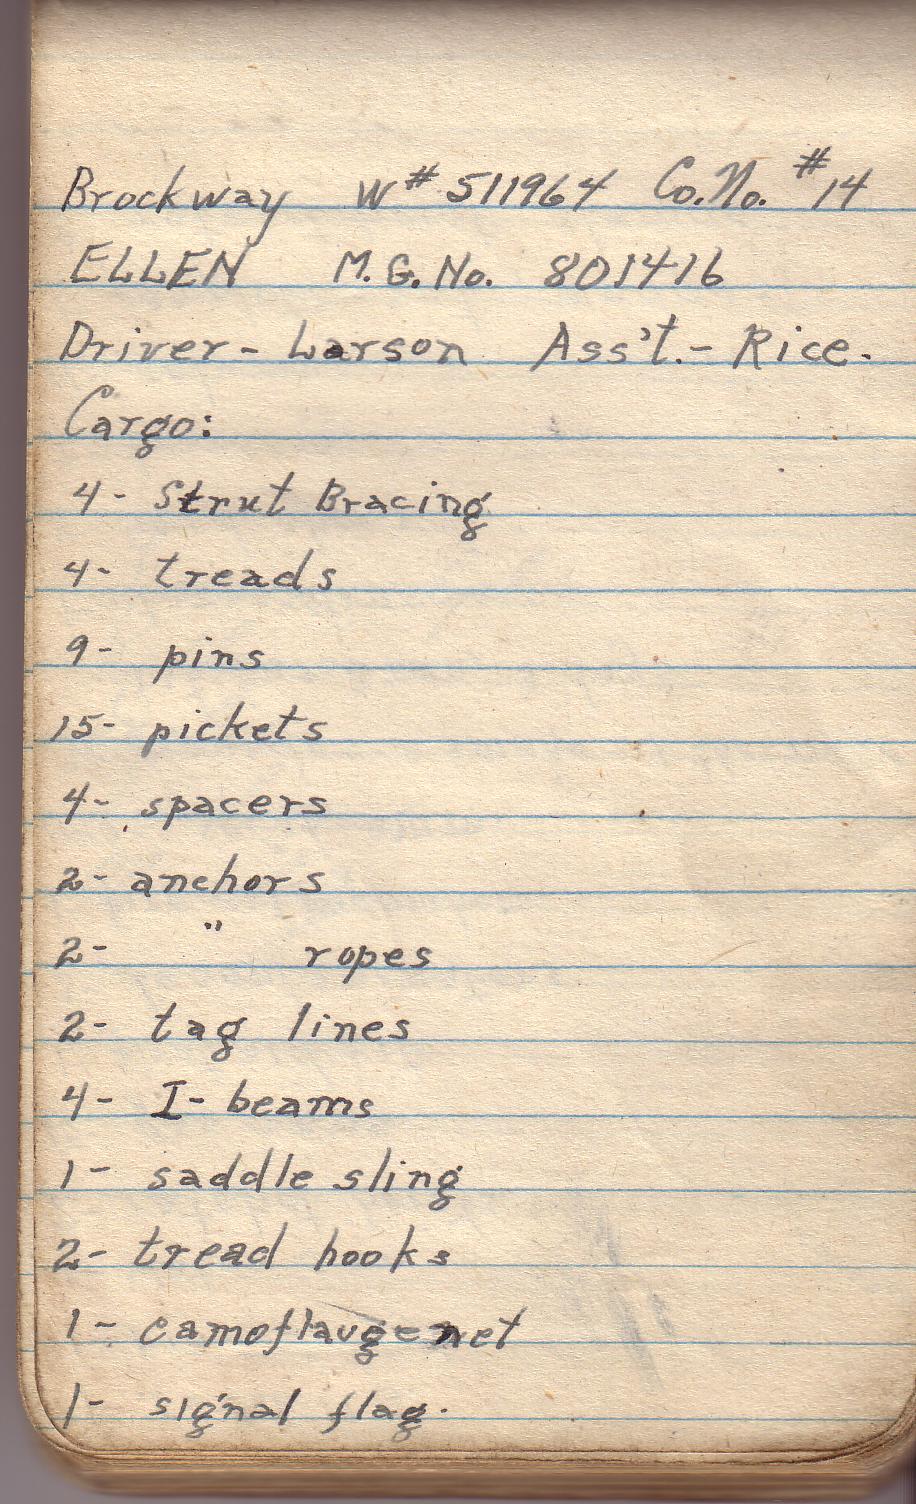 Brockway W# 511964 Co. No. #14
ELLEN M.G. No. 801416
Driver - Larson Ass't. - Rice.
Cargo:
4- Strut Bracing
4- treads
9- pins
15- pickets
4- spacers
2- anchors
2- " ropes
2- tag lines
4- I-beams
1- saddle sling
2- tread hooks
1- camoflauge net
1- signal flag.